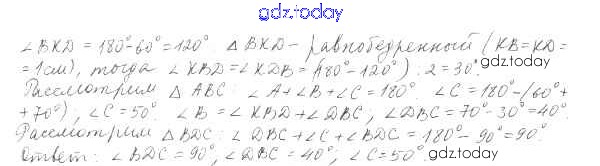 gdz.today
∠BKD = 180°-60° = 120°. △BKD - равнобедренный (KB=KD=
=1см), тогда ∠KBD=∠KDB=(180°-120°):2=30°.
gdz.today
Рассмотрим △ABC: ∠A+∠B+∠C=180°. ∠C=180°-(60°+
+70°), ∠C=50°. ∠B=∠KBD+∠DBC; ∠DBC=70°-30°=40°.
Рассмотрим △BDC: ∠DBC+∠C+∠BDC=180°-90°=90°.
Ответ: ∠BDC=90°, ∠DBC=40°; ∠C=50°.
gdz.today